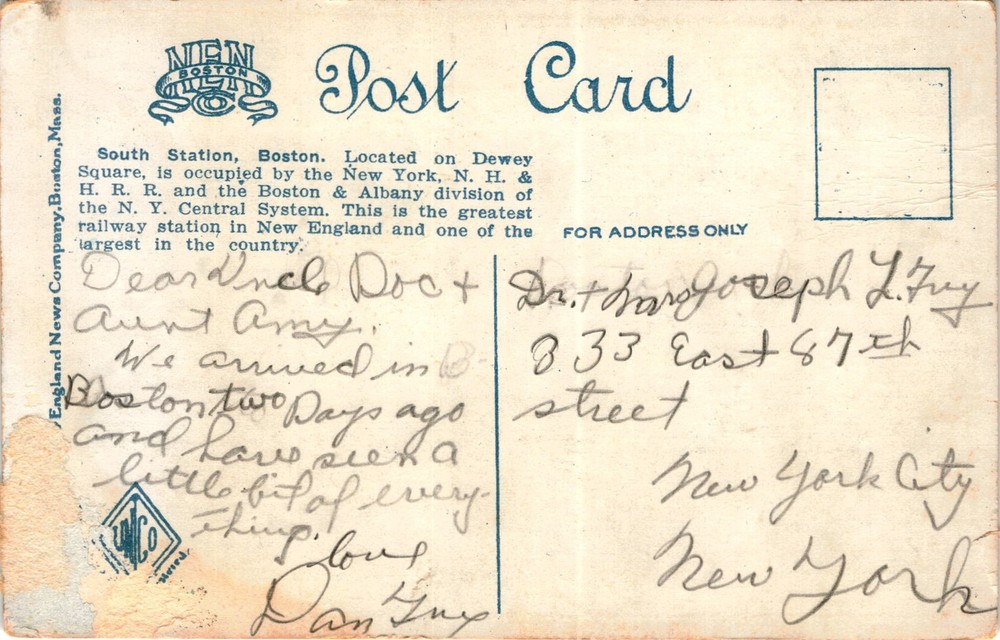 NEN
BOSTON
Co
Post Card
England News Company, Boston, Mass.
South Station, Boston. Located on Dewey
Square, is occupied by the New York, N. H. &
H. R. R. and the Boston & Albany division of
the N. Y. Central System. This is the greatest
railway station in New England and one of the
largest in the country.
FOR ADDRESS ONLY
Dear Uncle Doc +
Aunt Amy.
We arrived in B
Boston two Days ago
and have seen a
little bit of every-
thing.
love
Dan
Dr. + Mrs Joseph L.
833 East 87th
street
New York City
New York